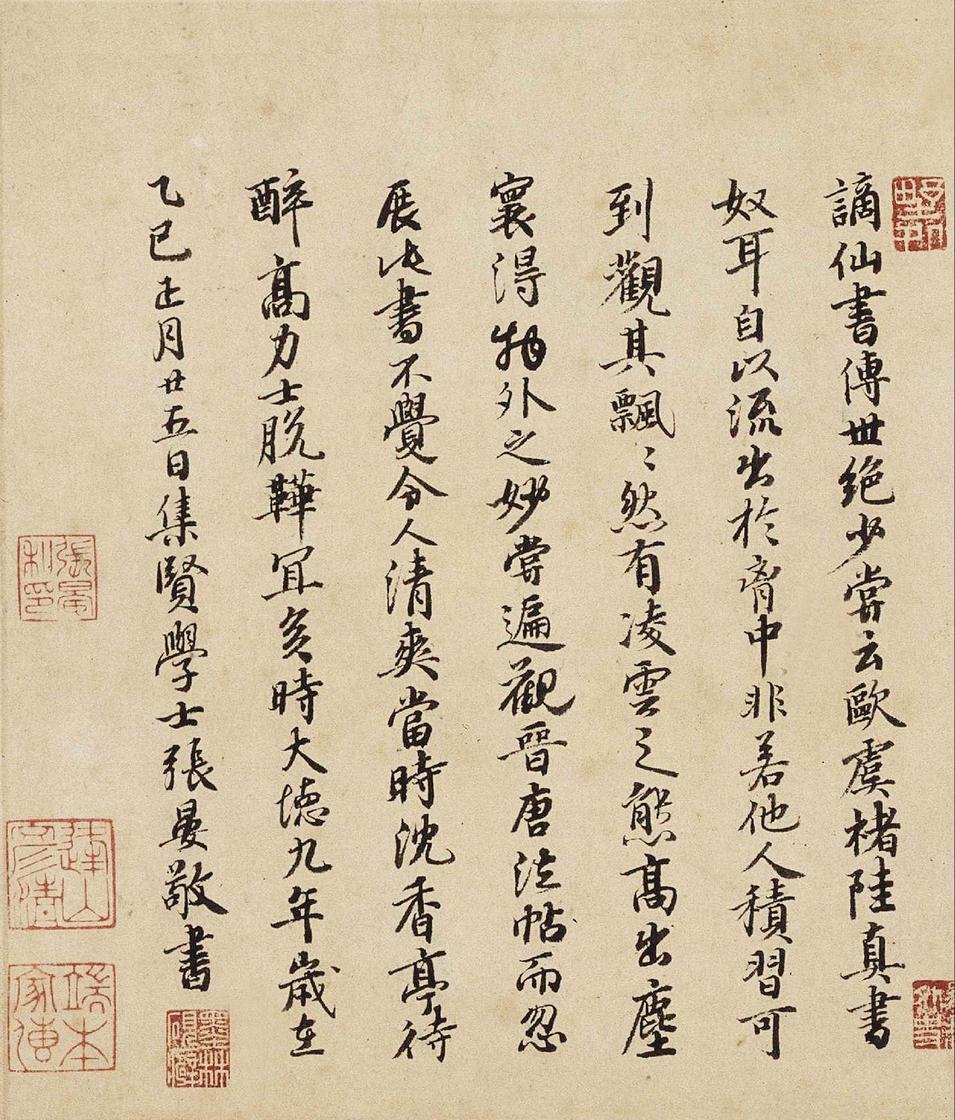 謫仙書傳世絕少嘗云歐虞褚陸真書
奴耳自以流出於胷中非若他人積習可
到觀其飄〻然有凌雲之態高出塵
寰得物外之妙嘗遍觀晉唐法帖而忽
展此書不覺令人清爽當時沈香亭待
醉高力士脫鞾宜矣時大德九年歲在
乙巳正月廿五日集賢學士張晏敬書
張晏私印
端本家傳